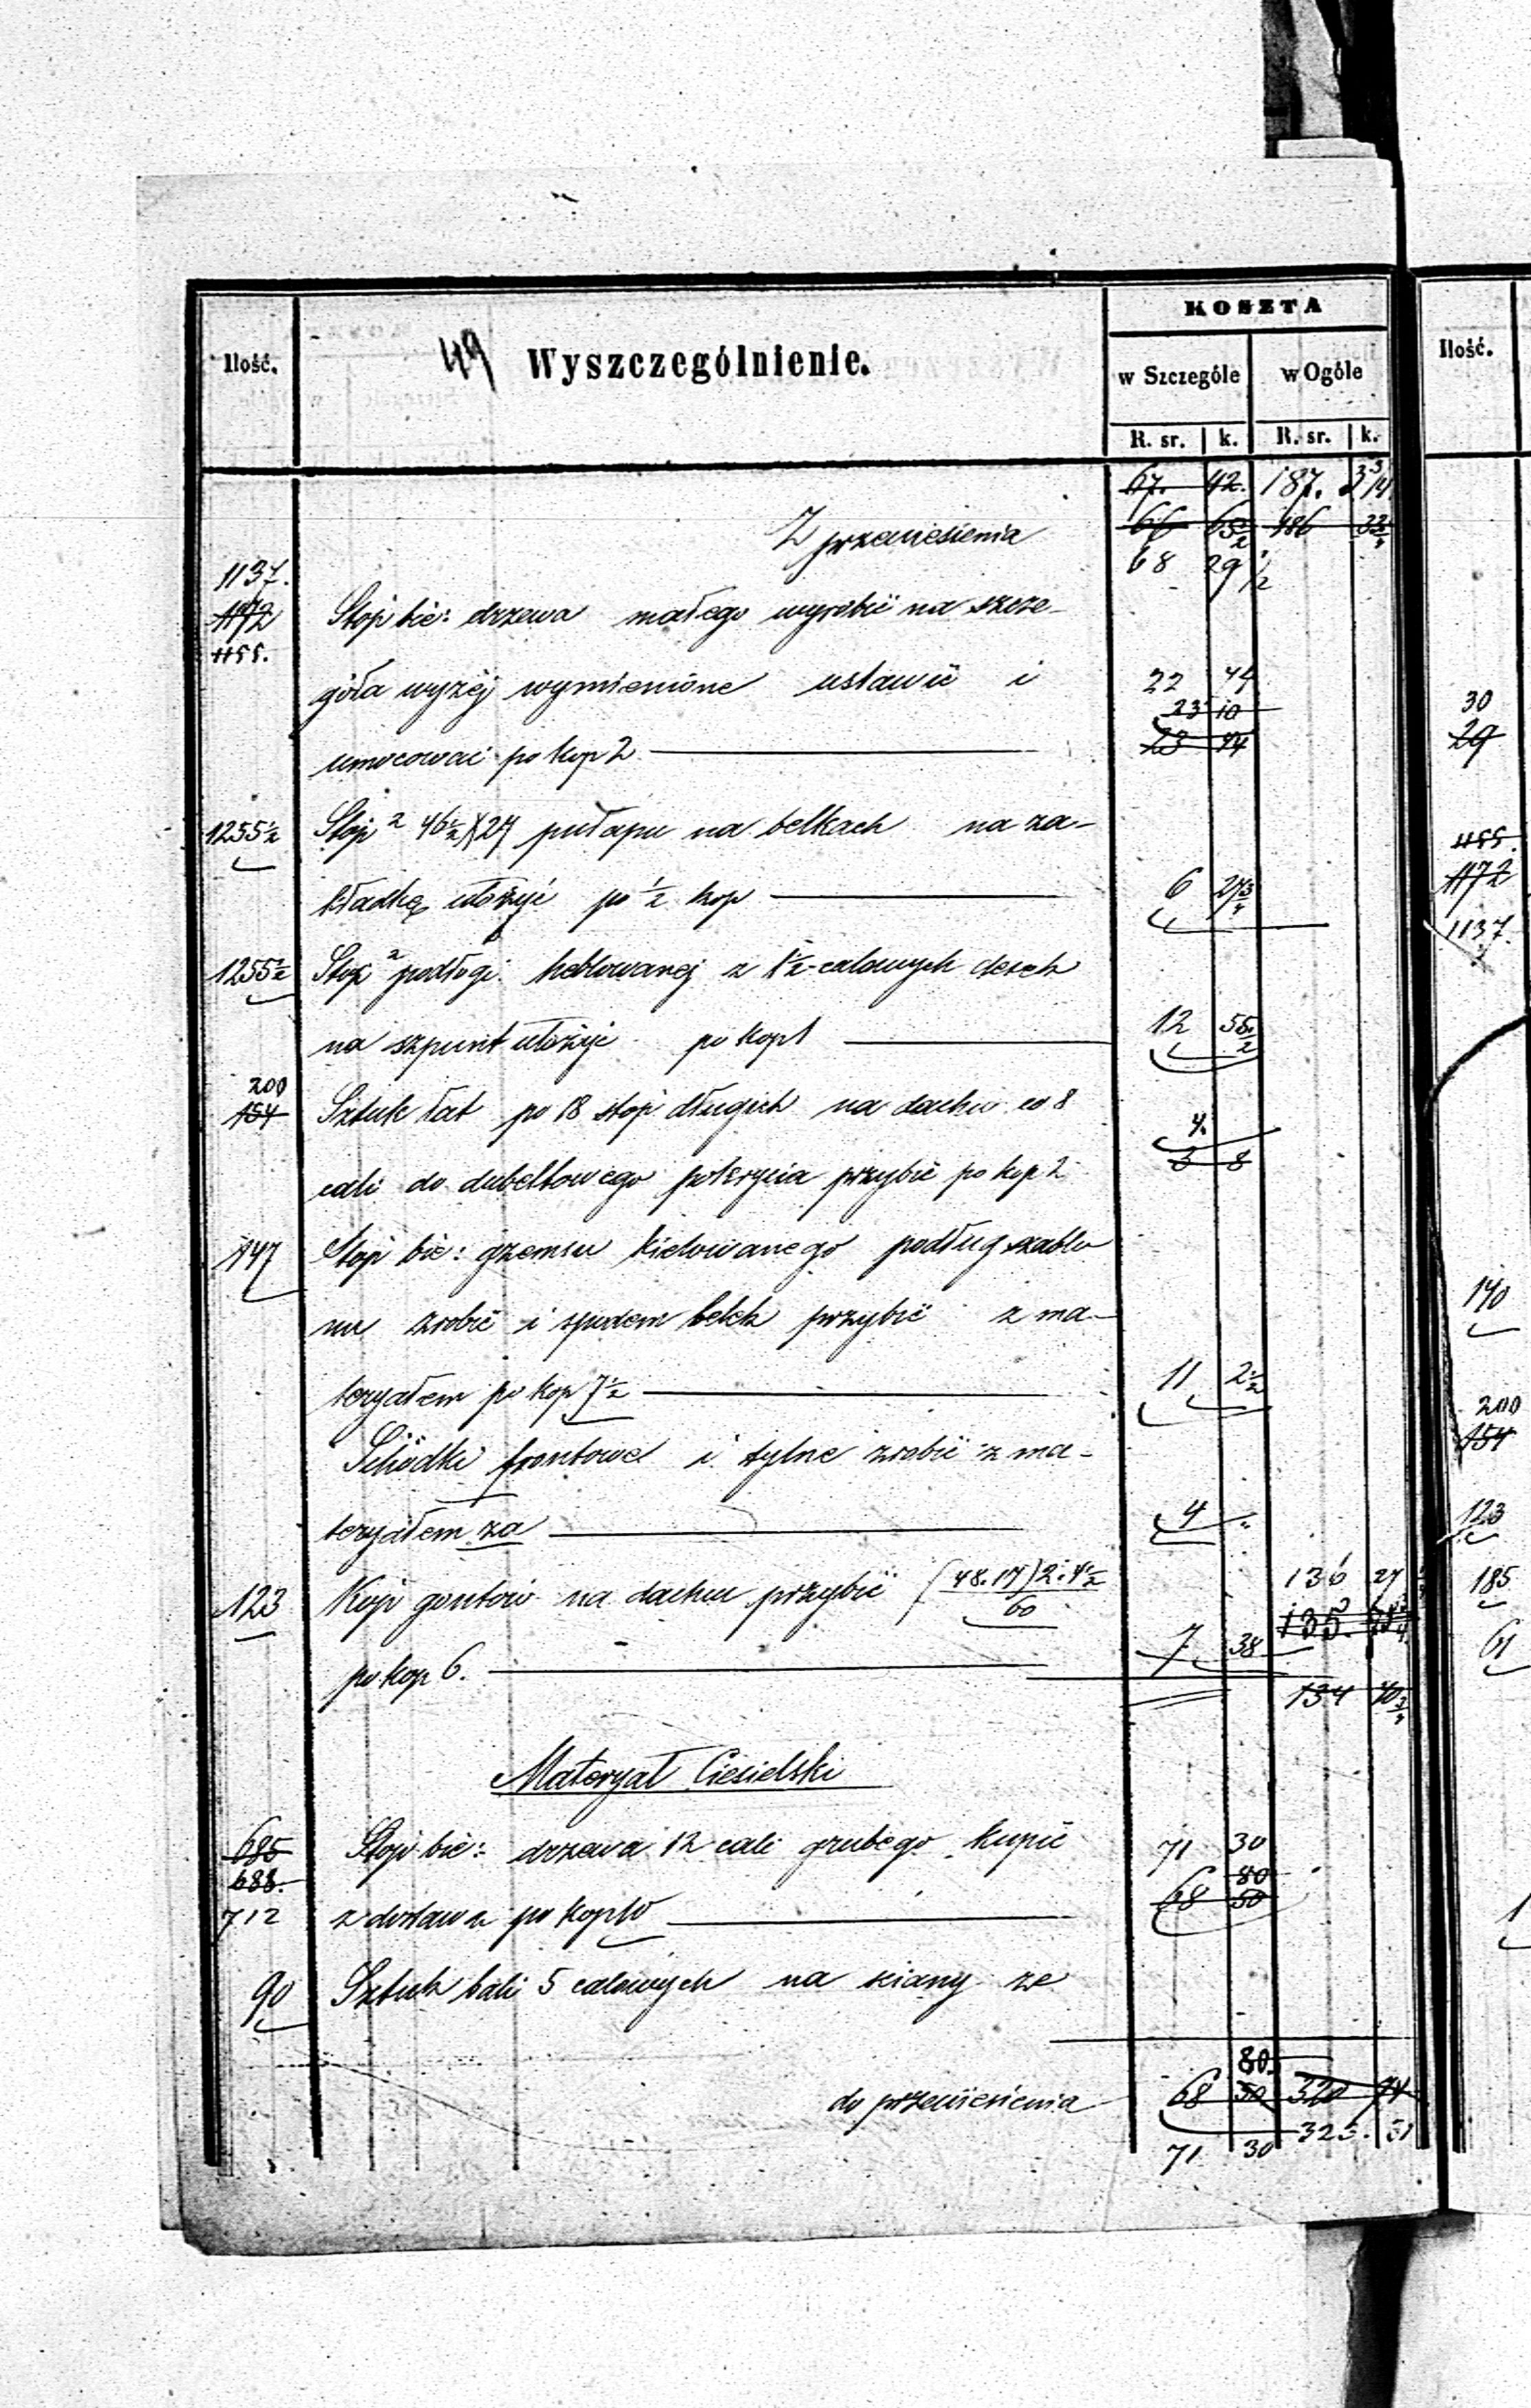 KOSZTA
Ilość. 49 Wyszczególnienie. w Szczególe w Ogóle
R. sr. k. R. sr. k.
67. 42. 187. 3 3/4
Z przeniesienia 66 65 1/2 186
68 29 1/2
1137.
1172 Stóp bie: drzewa małego wyrobić na szcze-
1155.
góła wyżéj wymienione ustawić i 22 74
23 10
umocować po kop 2 23 44
1255 1/2 Stóp 2 46 1/2 X 27 pułapu na belkach na za-
kładkę ułożyć po 1/2 kop 6 27 3/4
1255 1/2 Stóp 2 podłogi heblowanej z 1 1/2 calowych desek
na szpunt ułożyć po kop 1 12 55 1/2
200
154 Sztuk łat po 18 stóp długich na dachu co 8
4.
cali do dubeltowego pokrycia przybić po kop 2 3 8
147 Stóp bie: gzemsu kielowanego podług szablo
nu zrobić i spodem belek przybić z ma-
teryałem po kop 7 1/2 11 2 1/2
Schodki frontowe i tylne zrobić z ma-
teryałem za 4 "
123 Kóp gontów na dachu przybić (48.17)2.4 1/2 / 60 136 27
7 38 135.
po kop 6. 134 40 3/4
Materyał Ciesielski
685 Stóp bie: drzewa 12 cali grubego kupić 71 30
688. 80
712 z dostawą po kop 10 68 50
90 Sztuk bali 5 calowych na ściany ze
80
do przeniesienia 68 50 320 74
71 30 325. 51
Ilość.
30
29
1155.
1172
1137.
140
200
154
123
185
61
1